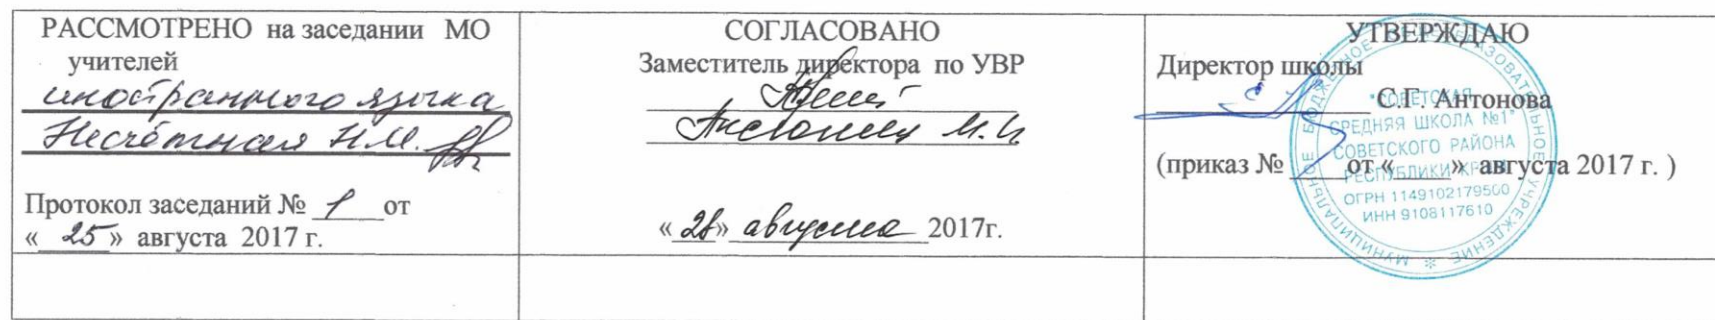 РАССМОТРЕНО на заседании МО
учителей
иностранного языка
Несчётная Н.М.
Протокол заседаний № 1 от
« 25 » августа 2017 г.
СОГЛАСОВАНО
Заместитель директора по УВР
М.И.
« 28 » августа 2017г.
УТВЕРЖДАЮ
Директор школы
С.Г. Антонова
(приказ № ____ от «____» августа 2017 г. )
МУНИЦИПАЛЬНОЕ БЮДЖЕТНОЕ ОБЩЕОБРАЗОВАТЕЛЬНОЕ УЧРЕЖДЕНИЕ
"СОВЕТСКАЯ
СРЕДНЯЯ ШКОЛА №1"
СОВЕТСКОГО РАЙОНА
РЕСПУБЛИКИ КРЫМ
ОГРН 1149102179500
ИНН 9108117610